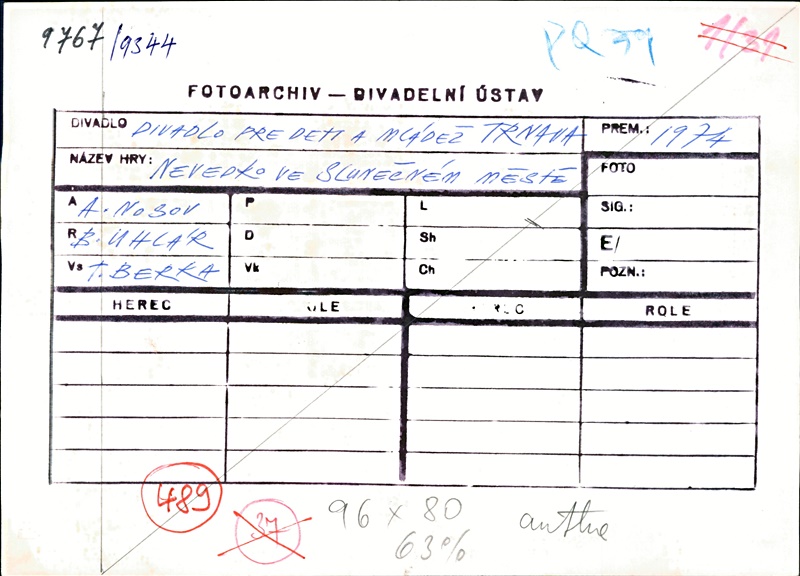 9767/9344
PQ 79
1/31
FOTOARCHIV — DIVADELNÍ ÚSTAV
DIVADLO DIVADLO PRE DETI A MLÁDEŽ TRNAVA PREM.: 1974
NÁZEV HRY: NEVEDKO VE SLUNEČNÉM MĚSTĚ FOTO
A A. NOSOV P L SIG.:
R B. UHLÁR D Sh E/
Vs T. BERKA Vk Ch POZN.:
HEREC ROLE
489
37
96 x 80
63%